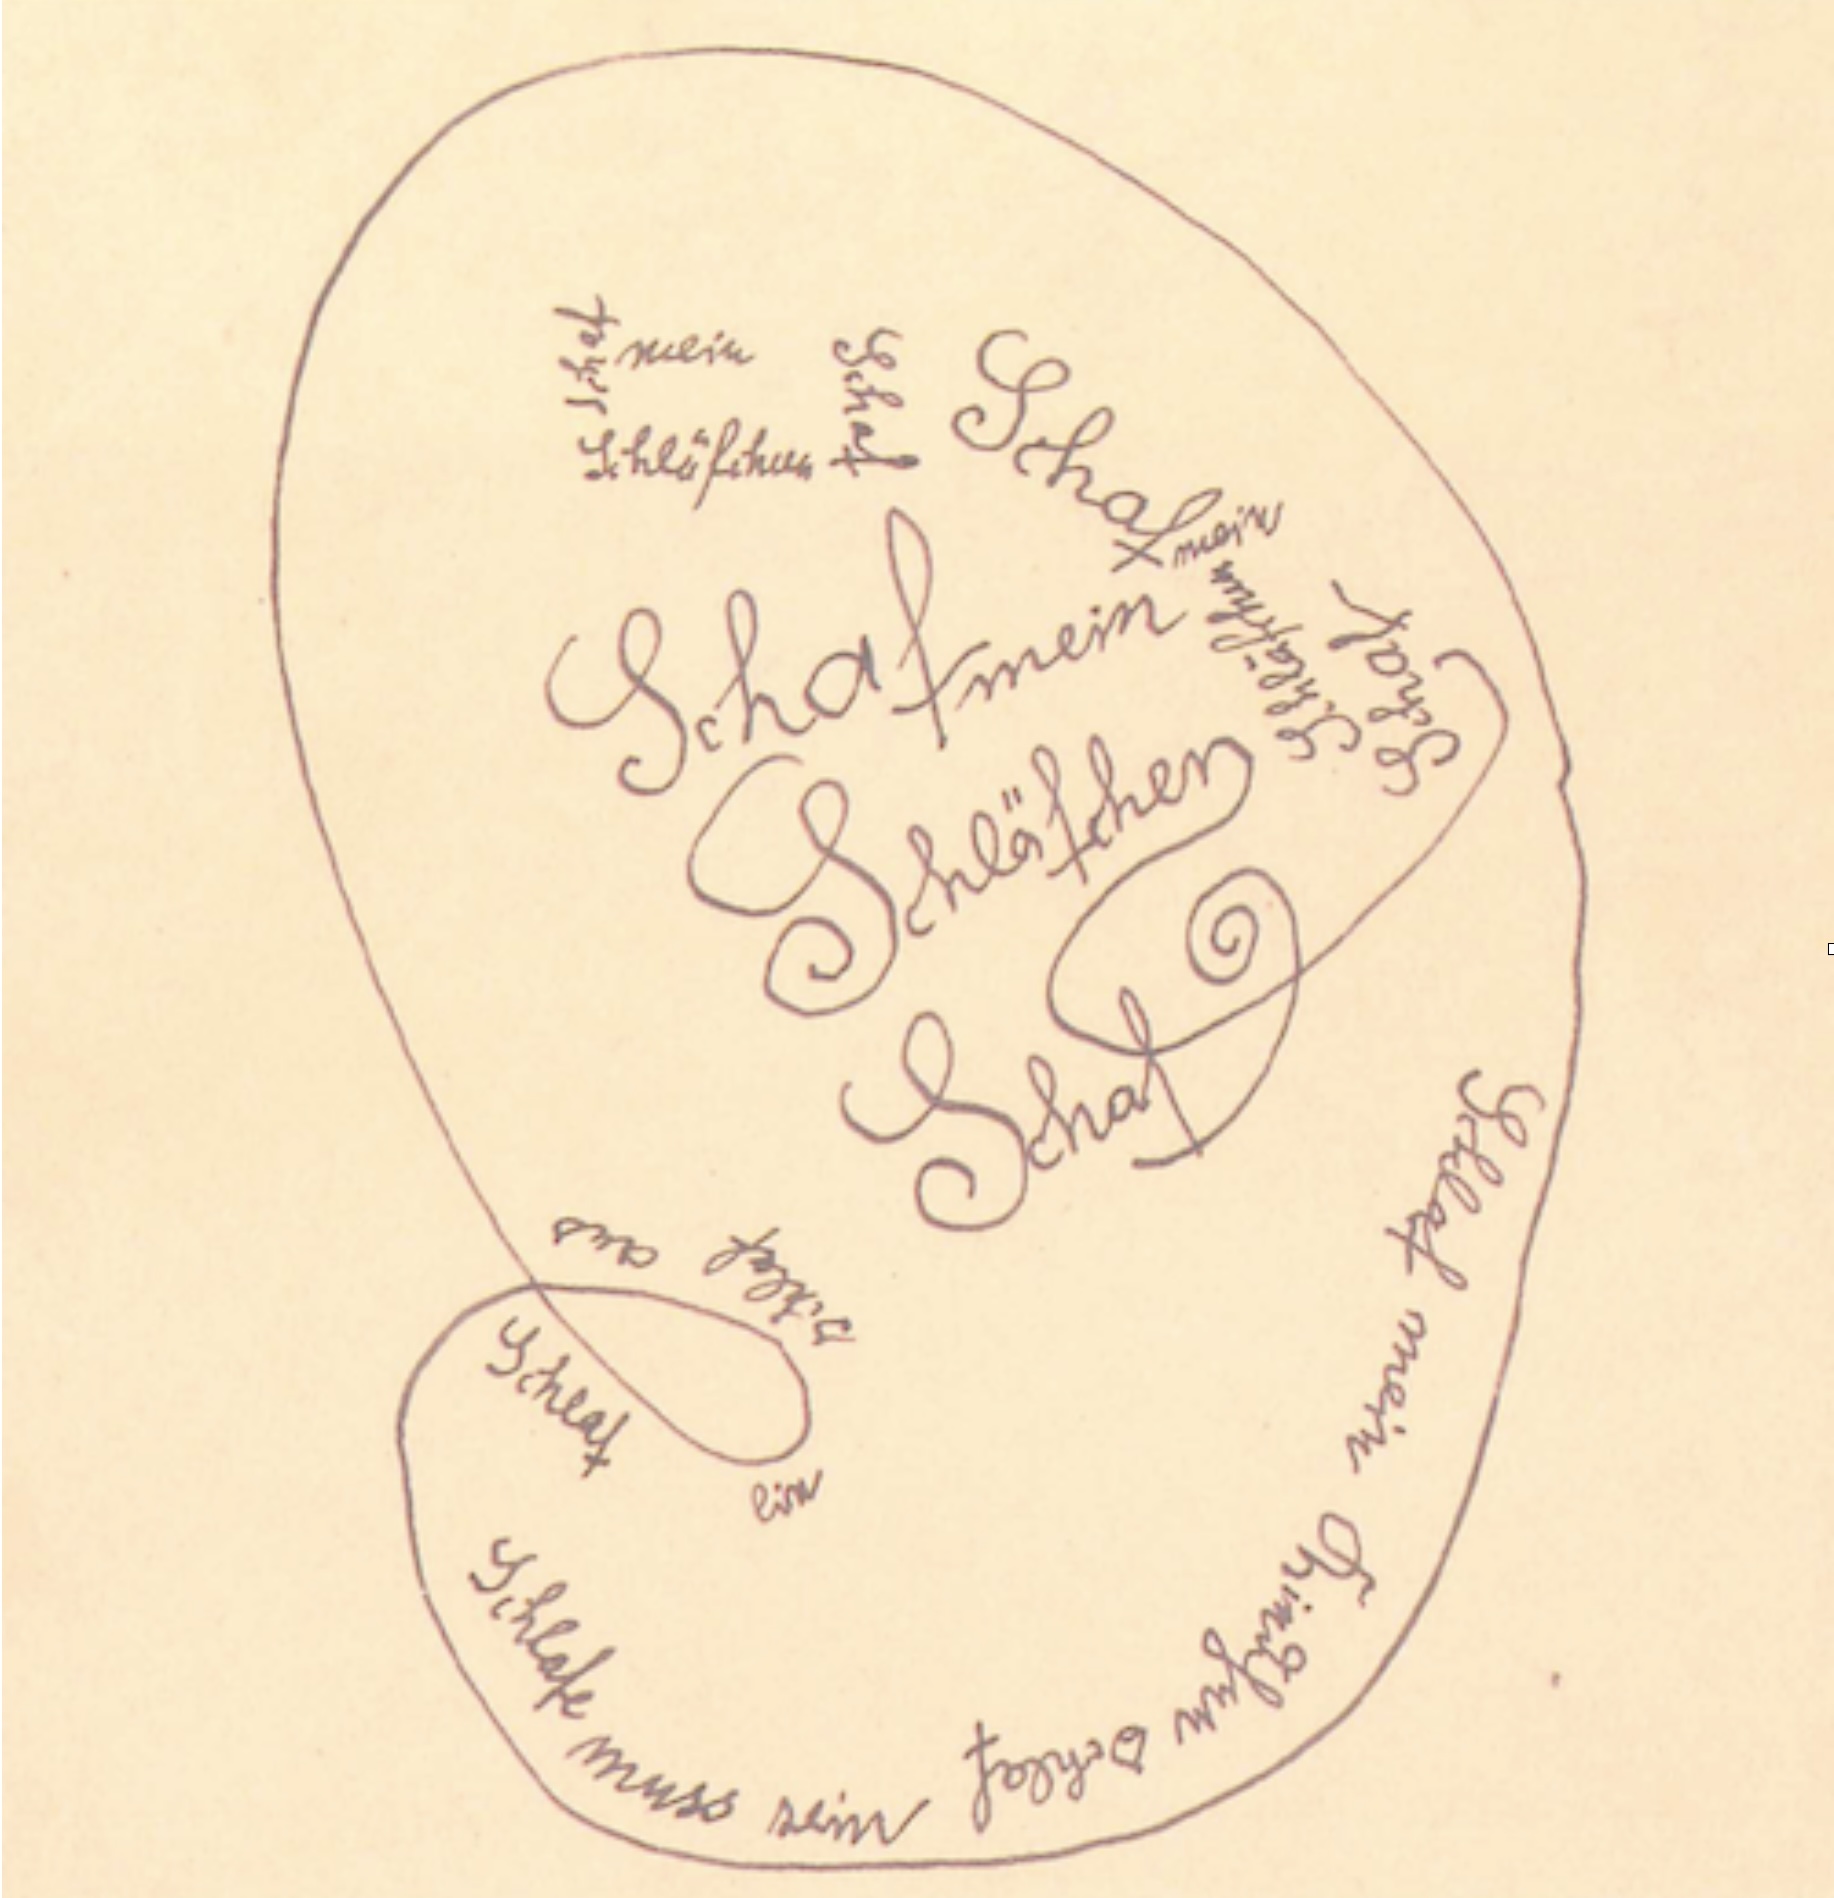 Schaf
mein
Schläfchen
Schaf
Schaf
mein
Schläfchen
Schaf
Schaf mein
Schläfchen
Schaf
Schlaf aus
Schlaf ein
Schlaf mein Schlaf
Schlafe muss sein